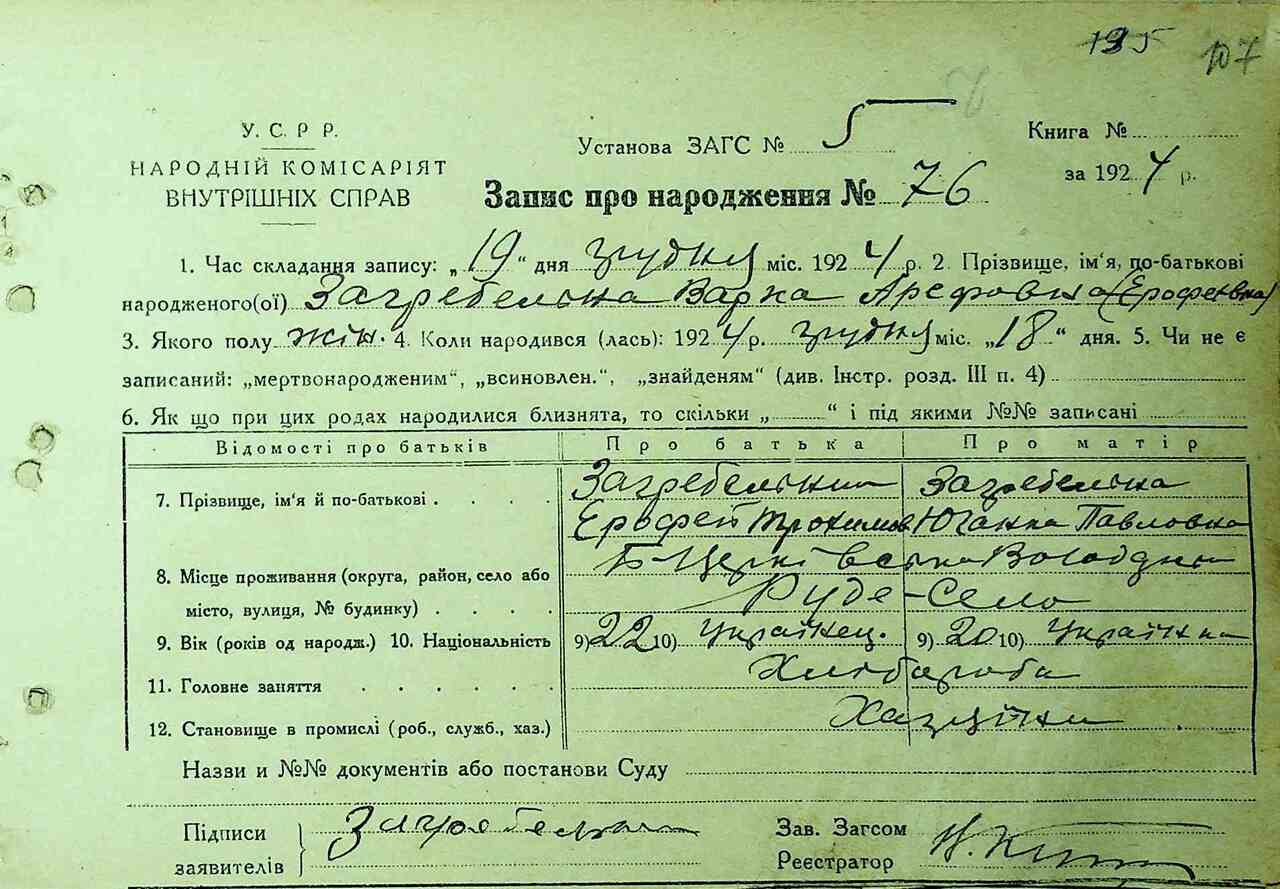 195 107
У. С. Р. Р.
НАРОДНІЙ КОМІСАРІЯТ
ВНУТРІШНІХ СПРАВ
Установа ЗАГС № 5
Книга №
за 1924 р.
Запис про народження № 76
1. Час складання запису: „19“ дня грудня міс. 1924 р. 2. Прізвище, ім'я, по-батькові
народженого(ої) Загребельна Варка Арефовна (Ерофеївна)
3. Якого полу жін. 4. Коли народився (лась): 1924 р. грудня міс. „18“ дня. 5. Чи не є
записаний: „мертвонародженим“, „всиновлен.“, „знайденям“ (див. Інстр. розд. III п. 4)
6. Як що при цих родах народилися близнята, то скільки „ “ і під якими №№ записані
Відомості про батьків Про батька Про матір
7. Прізвище, ім'я й по-батькові Загребельний Загребельна
Ерофей Трохимов Павловна
8. Місце проживання (округа, район, село або Б-Церківська
місто, вулиця, № будинку) Руде-Село
9. Вік (років од народж.) 10. Національність 9) 22 10) Українец. 9) 20 10) Українка
11. Головне заняття Хліборобы
12. Становище в промислі (роб., служб., хаз.)
Назви и №№ документів або постанови Суду
Підписи
заявителів
Зав. Загсом
Реєстратор